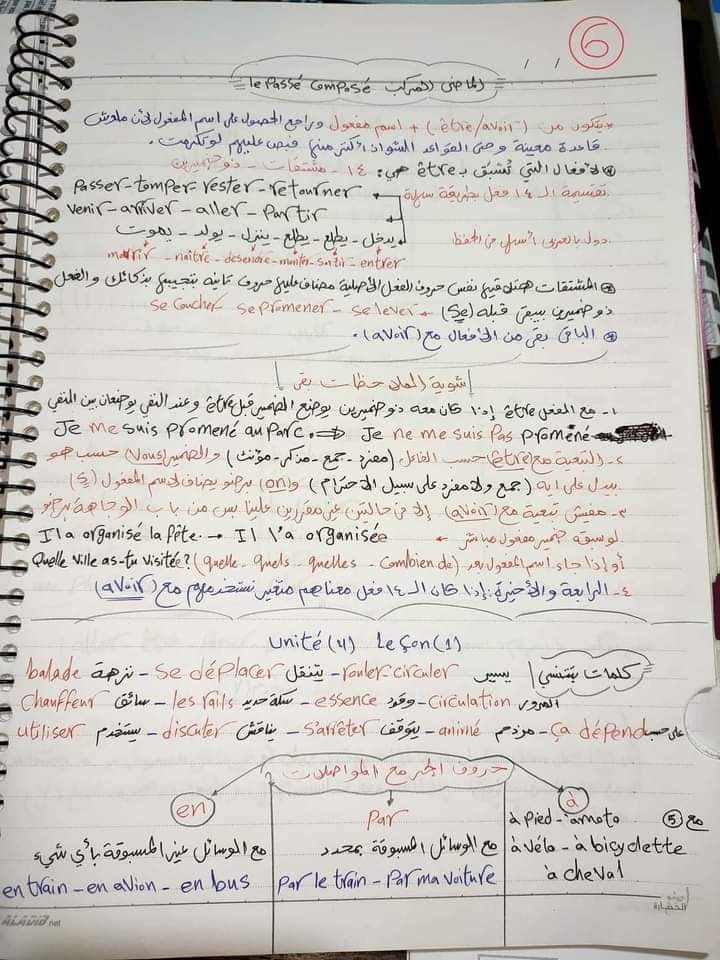 6
/ /
= le Passé Composé الماضى المركب =
* يتكون من (être/avoir) + اسم مفعول وراجع الحصول على اسم المفعول لأن ملوش
قاعدة معينة وحتى القواعد الشواذ أكتر منها فبص عليهم لو تكرمت.
الأفعال التي تُسبق بـ être هي: ١٤ - مشتقات - ذو ضميرين
تقسيمة الـ ١٤ فعل بطريقة سهلة
Passer-tomper-rester-retourner
Venir-arriver-aller-Partir
يدخل - يطلع - يطلع - ينزل - يولد - يموت
دول بالعربى أسهل من الحفظ
mourir - naître - descendre - monter - sortir - entrer
المشتقات هتلاقيها نفس حروف الفعل الأصلية مضاف عليها حروف تانية بتجيبها بذكائك والفعل
ذو ضميرين بيبقى قبله (Se) ← Se Coucher - se promener - se lever
الباقى بقى من الأفعال مع (avoir).
شوية الملاحظات بقى
١- مع الفعل être إذا كان معه ذو ضميرين يوضع الضمير قبل être وعند النفى يوضعان بين النفى
Je me suis promené au Parc. ⇒ Je ne me suis Pas promené
٢- التبعية مع (être) حسب الفاعل (مفرد - جمع - مذكر - مؤنث) والضمير (Vous) حسب هو
بيدل على ايه (جمع ولا مفرد على سبيل الاحترام) و(on) برضو يضاف لاسم المفعول (s)
٣- مفيش تبعية مع (avoir) إلا فى حالتين غير مقررين علينا بس من باب الوجاهة برضو
لو سبقه ضمير مفعول مباشر ← Il a organisé la fête. → Il l'a organisée
أو إذا جاء اسم المفعول بعد (quelle - quels - quelles - Combien de) Quelle Ville as-tu visitée?
٤- الرابعة والأخيرة: إذا كان الـ ١٤ فعل معناهم متغير نستخدمهم مع (avoir)
Unité (4) Leçon (1)
كلمات بتتنسي | يسير rouler-circuler - يتنقل Se déplacer - نزهة balade
المرور Circulation - وقود essence - سكة حديد les rails - سائق Chauffeur
على حسب Ça dépend - مزدحم animé - يتوقف S'arrêter - يناقش discuter - يستخدم utiliser
حروف الجر مع المواصلات
en Par à
مع ⑤ à Pied - à moto
à vélo - à bicyclette
à cheval
مع الوسائل المسبوقة بمحدد
Par le train - Par ma voiture
مع الوسائل غير المسبوقة بأي شيء
en train - en avion - en bus
الحضارة
.net